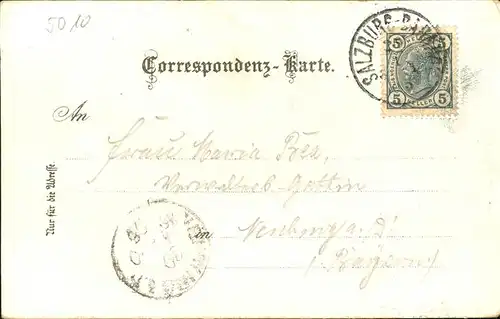 5010
Correspondenz-Karte.
SALZBURG-BAHNHOF
5 5
An
Frau Maria
Verwalters Gattin
in Neuburg a. D.
(Bayern)
Nur für die Adresse.